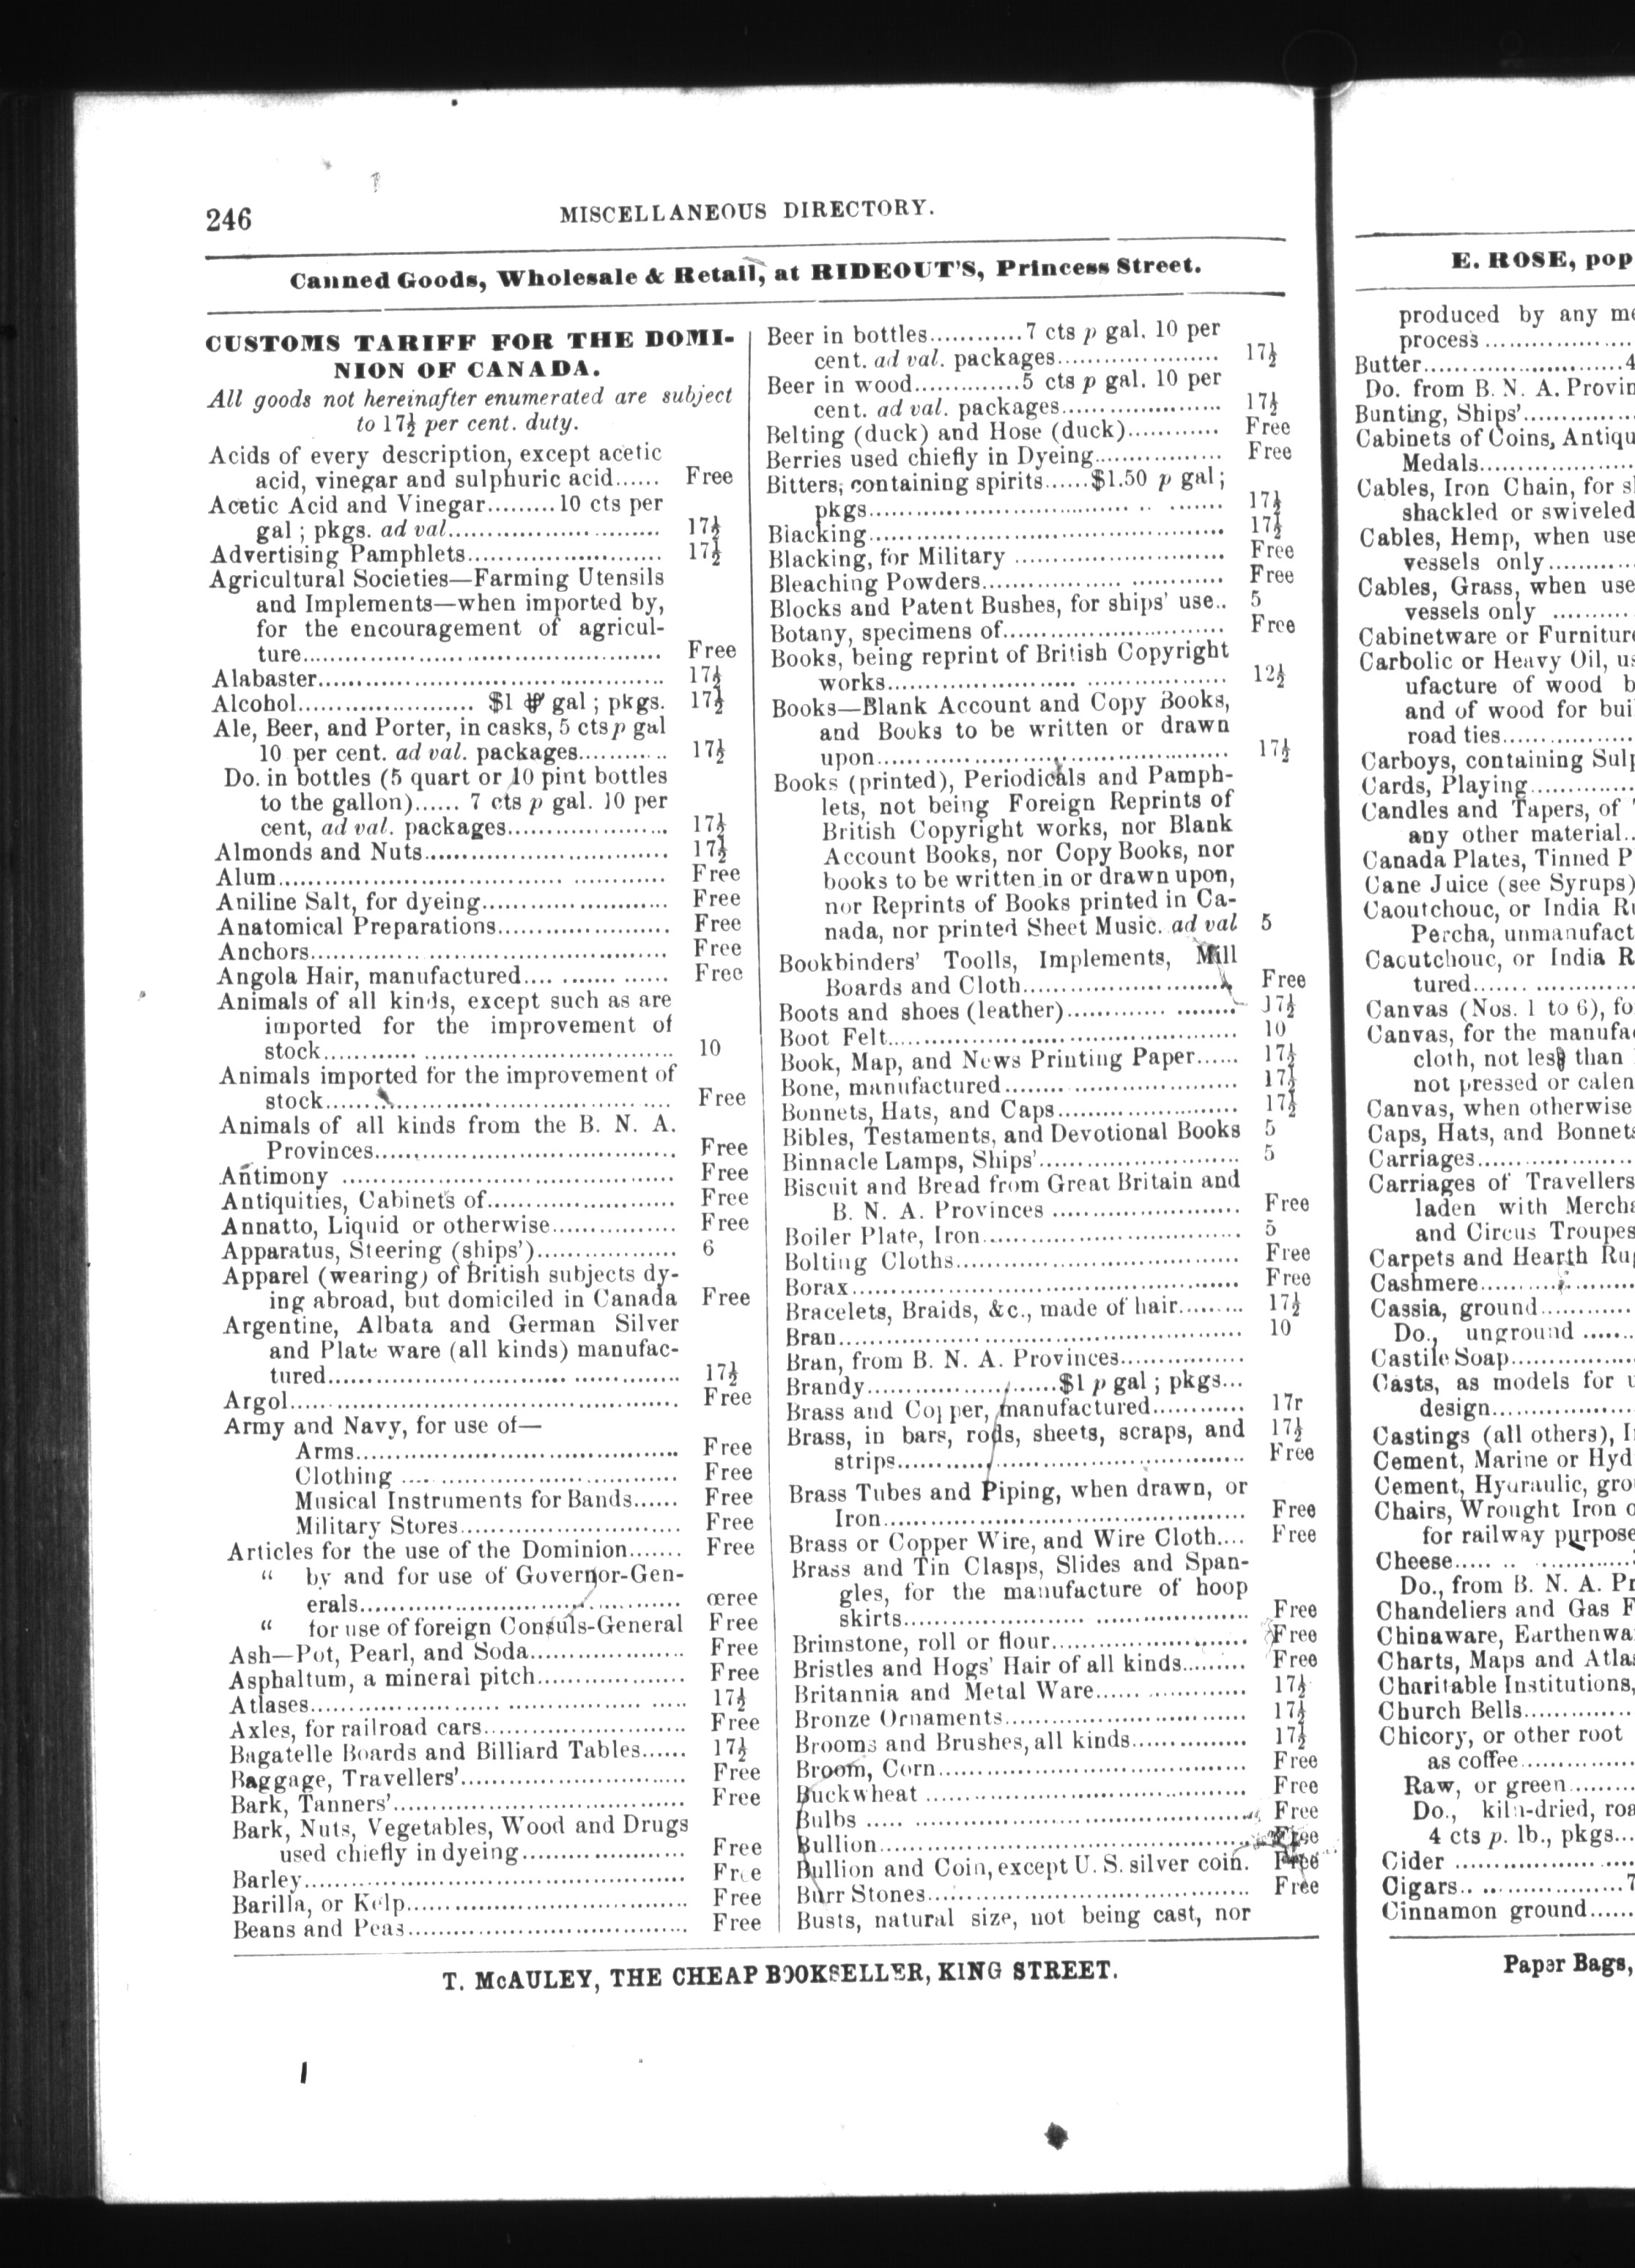 246 MISCELLANEOUS DIRECTORY.
Canned Goods, Wholesale & Retail, at RIDEOUT'S, Princess Street.
CUSTOMS TARIFF FOR THE DOMI-
NION OF CANADA.
All goods not hereinafter enumerated are subject
to 17½ per cent. duty.
Acids of every description, except acetic
acid, vinegar and sulphuric acid...... Free
Acetic Acid and Vinegar.........10 cts per
gal ; pkgs. ad val............................ 17½
Advertising Pamphlets.......................... 17½
Agricultural Societies—Farming Utensils
and Implements—when imported by,
for the encouragement of agricul-
ture................................................ Free
Alabaster.............................................. 17½
Alcohol....................... $1 ⅌ gal ; pkgs. 17½
Ale, Beer, and Porter, in casks, 5 cts p gal
10 per cent. ad val. packages............ 17½
Do. in bottles (5 quart or 10 pint bottles
to the gallon)...... 7 cts p gal. 10 per
cent, ad val. packages..................... 17½
Almonds and Nuts................................ 17½
Alum.................................................... Free
Aniline Salt, for dyeing......................... Free
Anatomical Preparations....................... Free
Anchors................................................ Free
Angola Hair, manufactured.................... Free
Animals of all kinds, except such as are
imported for the improvement of
stock............................................... 10
Animals imported for the improvement of
stock............................................... Free
Animals of all kinds from the B. N. A.
Provinces........................................ Free
Antimony ............................................. Free
Antiquities, Cabinets of......................... Free
Annatto, Liquid or otherwise................. Free
Apparatus, Steering (ships')................... 6
Apparel (wearing) of British subjects dy-
ing abroad, but domiciled in Canada Free
Argentine, Albata and German Silver
and Plate ware (all kinds) manufac-
tured............................................... 17½
Argol.................................................... Free
Army and Navy, for use of—
Arms........................................... Free
Clothing ..................................... Free
Musical Instruments for Bands...... Free
Military Stores............................. Free
Articles for the use of the Dominion....... Free
“ by and for use of Governor-Gen-
erals........................................... œree
“ for use of foreign Consuls-General Free
Ash—Pot, Pearl, and Soda..................... Free
Asphaltum, a mineral pitch................... Free
Atlases.................................................. 17½
Axles, for railroad cars.......................... Free
Bagatelle Boards and Billiard Tables...... 17½
Baggage, Travellers'.............................. Free
Bark, Tanners'....................................... Free
Bark, Nuts, Vegetables, Wood and Drugs
used chiefly in dyeing...................... Free
Barley................................................... Free
Barilla, or Kelp..................................... Free
Beans and Peas..................................... Free
Beer in bottles............7 cts p gal. 10 per
cent. ad val. packages..................... 17½
Beer in wood..............5 cts p gal. 10 per
cent. ad val. packages..................... 17½
Belting (duck) and Hose (duck)............ Free
Berries used chiefly in Dyeing................ Free
Bitters, containing spirits......$1.50 p gal ;
pkgs............................................... 17½
Blacking............................................... 17½
Blacking, for Military ........................... Free
Bleaching Powders................................ Free
Blocks and Patent Bushes, for ships' use.. 5
Botany, specimens of............................. Free
Books, being reprint of British Copyright
works............................................. 12½
Books—Blank Account and Copy Books,
and Books to be written or drawn
upon............................................... 17½
Books (printed), Periodicals and Pamph-
lets, not being Foreign Reprints of
British Copyright works, nor Blank
Account Books, nor Copy Books, nor
books to be written in or drawn upon,
nor Reprints of Books printed in Ca-
nada, nor printed Sheet Music. ad val 5
Bookbinders' Toolls, Implements, Mill
Boards and Cloth........................... Free
Boots and shoes (leather)...................... 17½
Boot Felt............................................... 10
Book, Map, and News Printing Paper...... 17½
Bone, manufactured.............................. 17½
Bonnets, Hats, and Caps........................ 17½
Bibles, Testaments, and Devotional Books 5
Binnacle Lamps, Ships'.......................... 5
Biscuit and Bread from Great Britain and
B. N. A. Provinces ......................... Free
Boiler Plate, Iron.................................. 5
Bolting Cloths....................................... Free
Borax.................................................... Free
Bracelets, Braids, &c., made of hair......... 17½
Bran...................................................... 10
Bran, from B. N. A. Provinces................
Brandy.........................$1 p gal ; pkgs...
Brass and Copper, manufactured............ 17r
Brass, in bars, rods, sheets, scraps, and 17½
strips.............................................. Free
Brass Tubes and Piping, when drawn, or
Iron................................................ Free
Brass or Copper Wire, and Wire Cloth.... Free
Brass and Tin Clasps, Slides and Span-
gles, for the manufacture of hoop
skirts.............................................. Free
Brimstone, roll or flour.......................... Free
Bristles and Hogs' Hair of all kinds......... Free
Britannia and Metal Ware...................... 17½
Bronze Ornaments................................. 17½
Brooms and Brushes, all kinds............... 17½
Broom, Corn......................................... Free
Buckwheat ........................................... Free
Bulbs .................................................... Free
Bullion.................................................. Free
Bullion and Coin, except U. S. silver coin. Free
Burr Stones........................................... Free
Busts, natural size, not being cast, nor
T. McAULEY, THE CHEAP BOOKSELLER, KING STREET.
E. ROSE, pop
produced by any me
process ..................
Butter...........................4
Do. from B. N. A. Provin
Bunting, Ships'...............
Cabinets of Coins, Antiqu
Medals.....................
Cables, Iron Chain, for s
shackled or swiveled
Cables, Hemp, when use
vessels only............
Cables, Grass, when use
vessels only ...........
Cabinetware or Furniture
Carbolic or Heavy Oil, us
ufacture of wood b
and of wood for bui
road ties..................
Carboys, containing Sulp
Cards, Playing..............
Candles and Tapers, of
any other material..
Canada Plates, Tinned P
Cane Juice (see Syrups)
Caoutchouc, or India Ru
Percha, unmanufact
Caoutchouc, or India R
tured.......................
Canvas (Nos. 1 to 6), fo
Canvas, for the manufac
cloth, not less than
not pressed or calen
Canvas, when otherwise
Caps, Hats, and Bonnets
Carriages......................
Carriages of Travellers
laden with Mercha
and Circus Troupes
Carpets and Hearth Rug
Cashmere......................
Cassia, ground..............
Do., unground ......
Castile Soap..................
Casts, as models for u
design.....................
Castings (all others), I
Cement, Marine or Hyd
Cement, Hydraulic, gro
Chairs, Wrought Iron o
for railway purpose
Cheese..........................
Do., from B. N. A. Pr
Chandeliers and Gas F
Chinaware, Earthenwa
Charts, Maps and Atlas
Charitable Institutions,
Church Bells.................
Chicory, or other root
as coffee..................
Raw, or green..........
Do., kiln-dried, roa
4 cts p. lb., pkgs...
Cider ...........................
Cigars.........................7
Cinnamon ground......
Paper Bags,